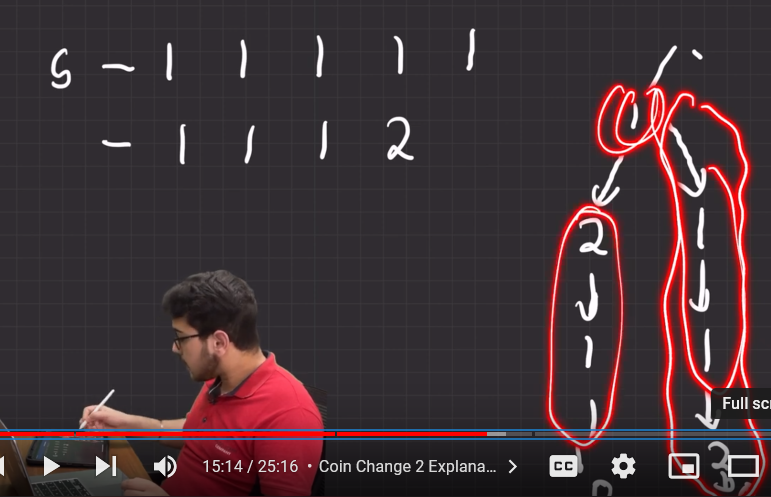 5 - 1 1 1 1 1
- 1 1 1 2
1
2
1
1
1
1
2
Full scr
15:14 / 25:16 • Coin Change 2 Explana...
CC